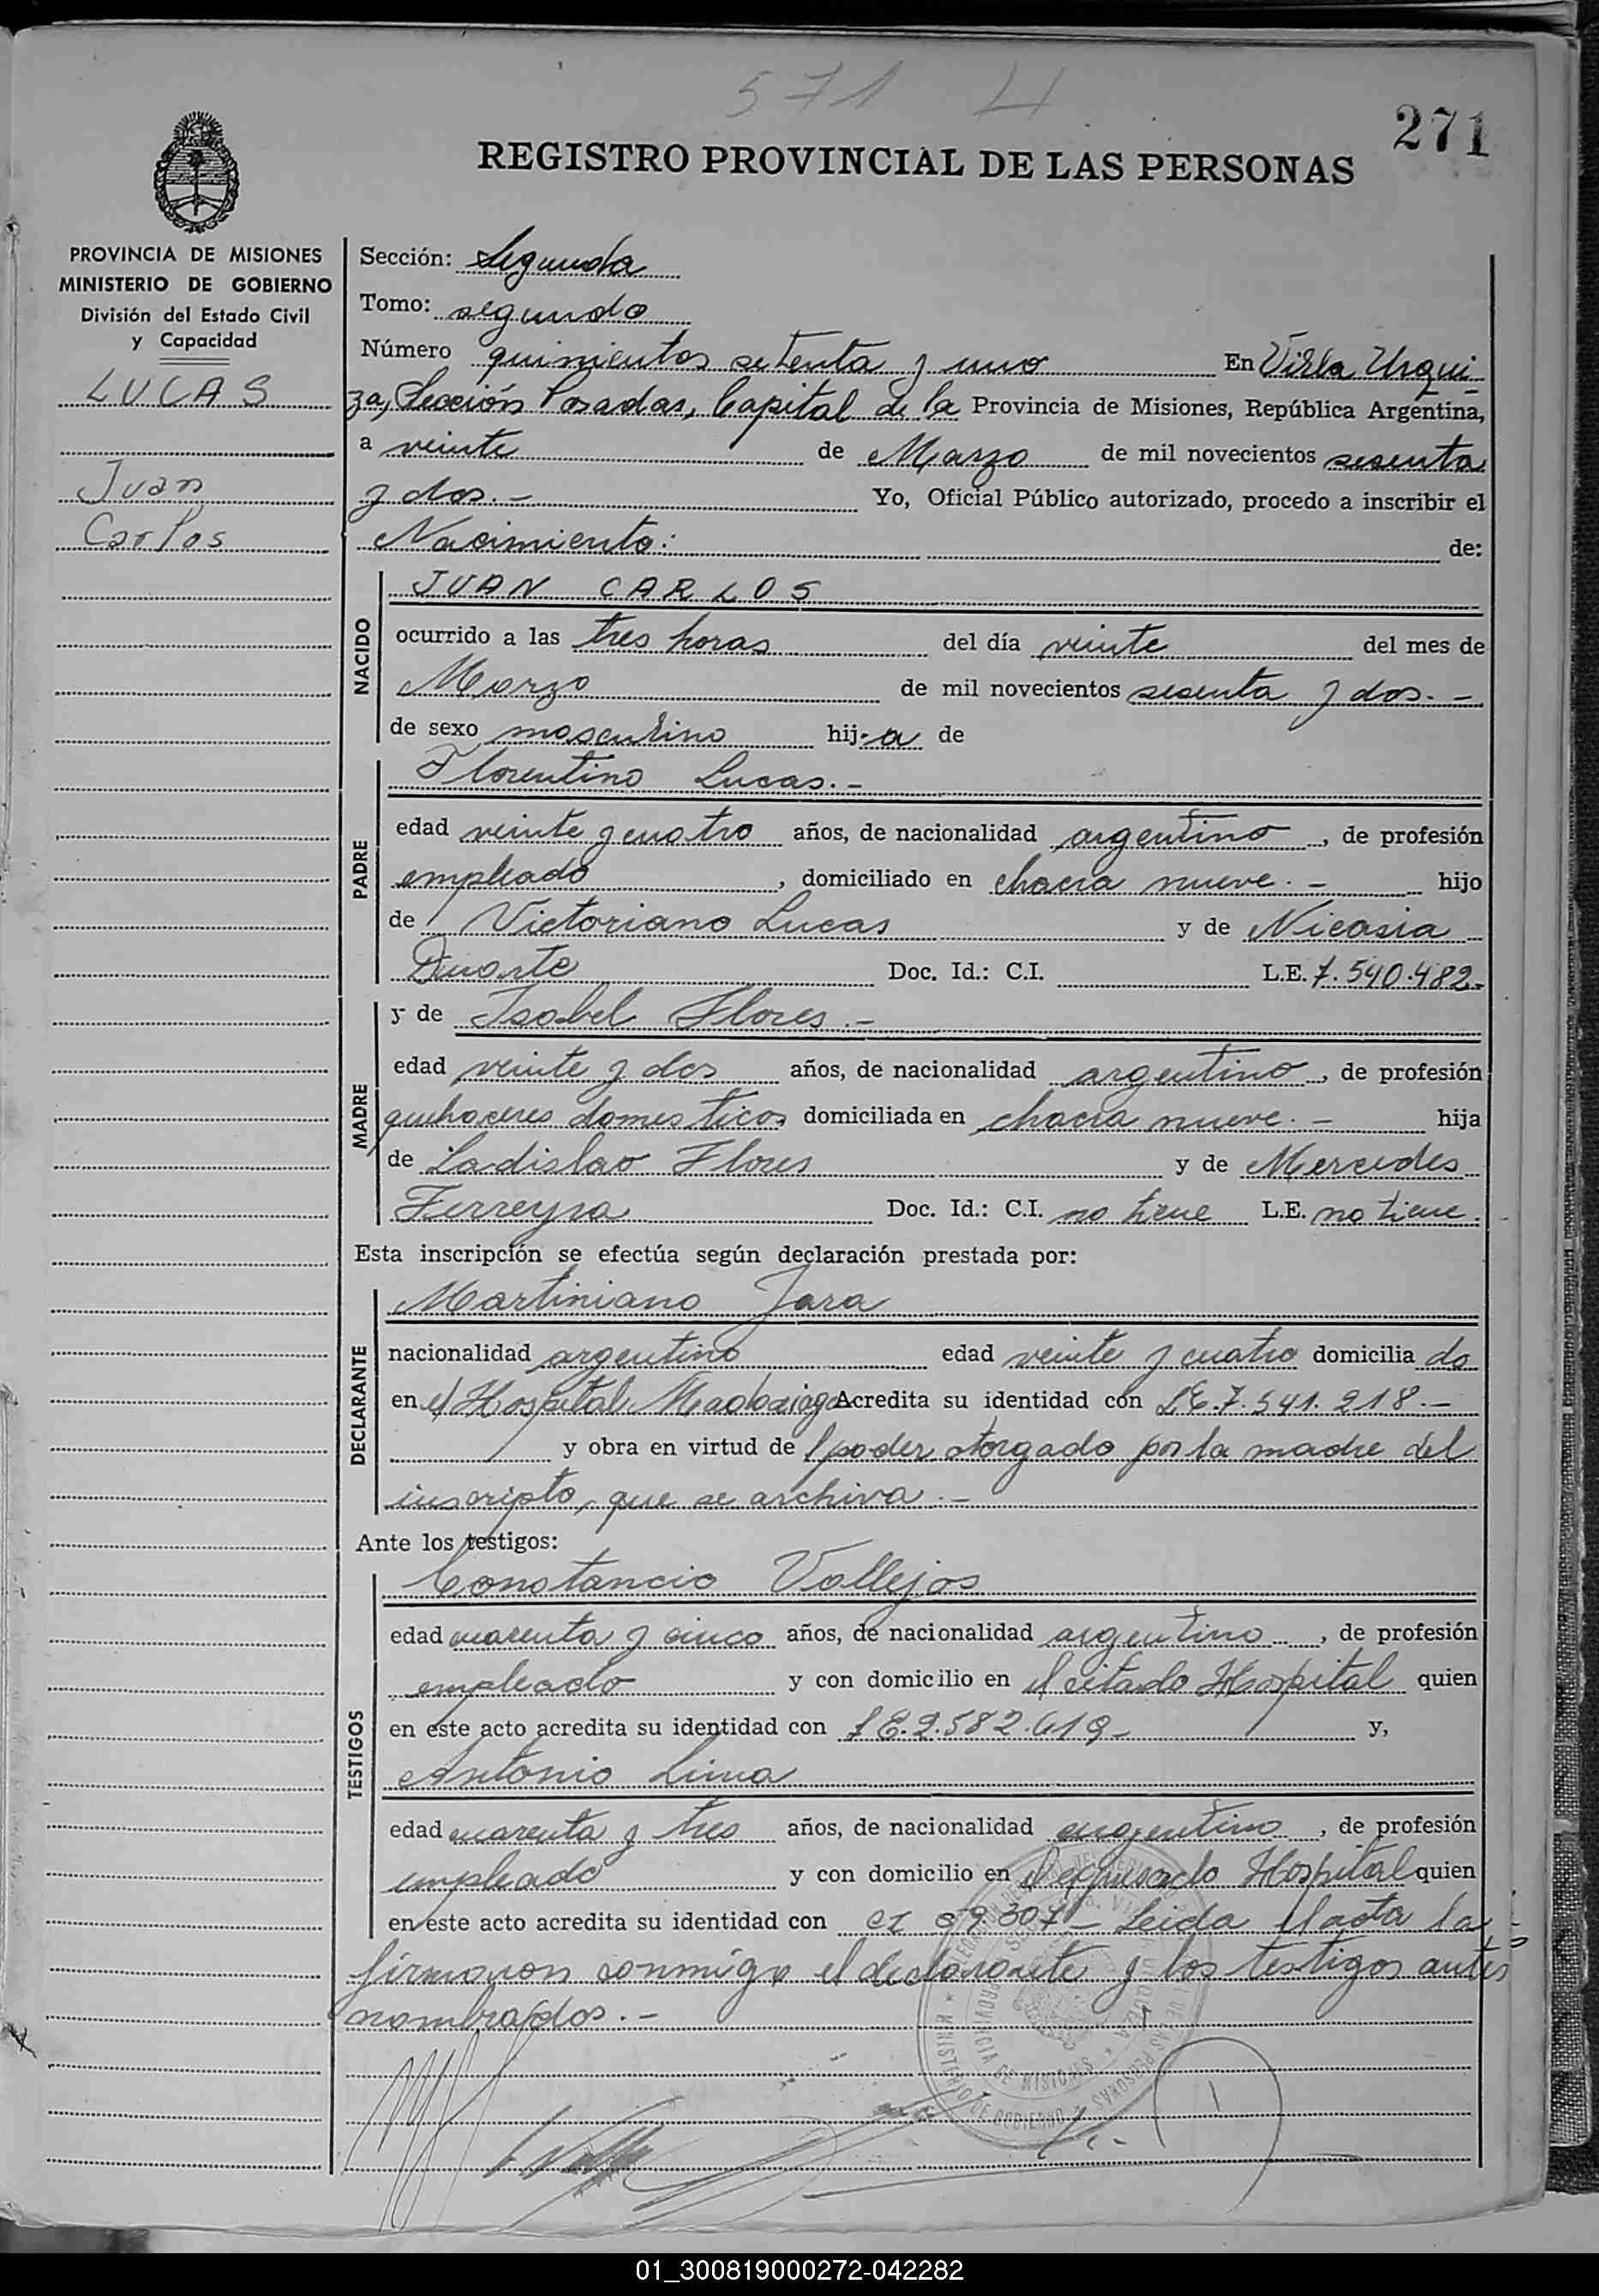 571 H
271
REGISTRO PROVINCIAL DE LAS PERSONAS
PROVINCIA DE MISIONES
MINISTERIO DE GOBIERNO
División del Estado Civil
y Capacidad
LUCAS
Juan
Carlos
Sección: Segunda
Tomo: segundo
Número quinientos setenta y uno En Villa Urqui
za, Sección Posadas, Capital de la Provincia de Misiones, República Argentina,
a veinte de Marzo de mil novecientos sesenta
y dos.- Yo, Oficial Público autorizado, procedo a inscribir el
Nacimiento: de:
NACIDO
JUAN CARLOS
ocurrido a las tres horas del día veinte del mes de
Marzo de mil novecientos sesenta y dos.-
de sexo masculino hij-o de
PADRE
Florentino Lucas.-
edad veinte y cuatro años, de nacionalidad argentino, de profesión
empleado, domiciliado en chacra nueve.- hijo
de Victoriano Lucas y de Nicasia
Duarte Doc. Id.: C.I. L.E. 7.540.482-
MADRE
y de Isabel Flores.-
edad veinte y dos años, de nacionalidad argentino, de profesión
quehaceres domesticos domiciliada en chacra nueve.- hija
de Ladislao Flores y de Mercedes
Ferreyra Doc. Id.: C.I. no tiene L.E. no tiene.
Esta inscripción se efectúa según declaración prestada por:
DECLARANTE
Martiniano Jara
nacionalidad argentino edad veinte y cuatro domicilia do
en el Hospital Madariaga Acredita su identidad con L.E. 7.541.218.-
y obra en virtud del poder otorgado por la madre del
inscripto, que se archiva.-
Ante los testigos:
TESTIGOS
Constancio Vallejos
edad cuarenta y cinco años, de nacionalidad argentino, de profesión
empleado y con domicilio en el citado Hospital quien
en este acto acredita su identidad con L.E. 2.582.619- y,
Antonio Lima
edad cuarenta y tres años, de nacionalidad argentino, de profesión
empleado y con domicilio en el expresado Hospital quien
en este acto acredita su identidad con CI 59.307- Leida el acta la
firmaron conmigo el declarante y los testigos antes
nombrados.-
01_300819000272-042282